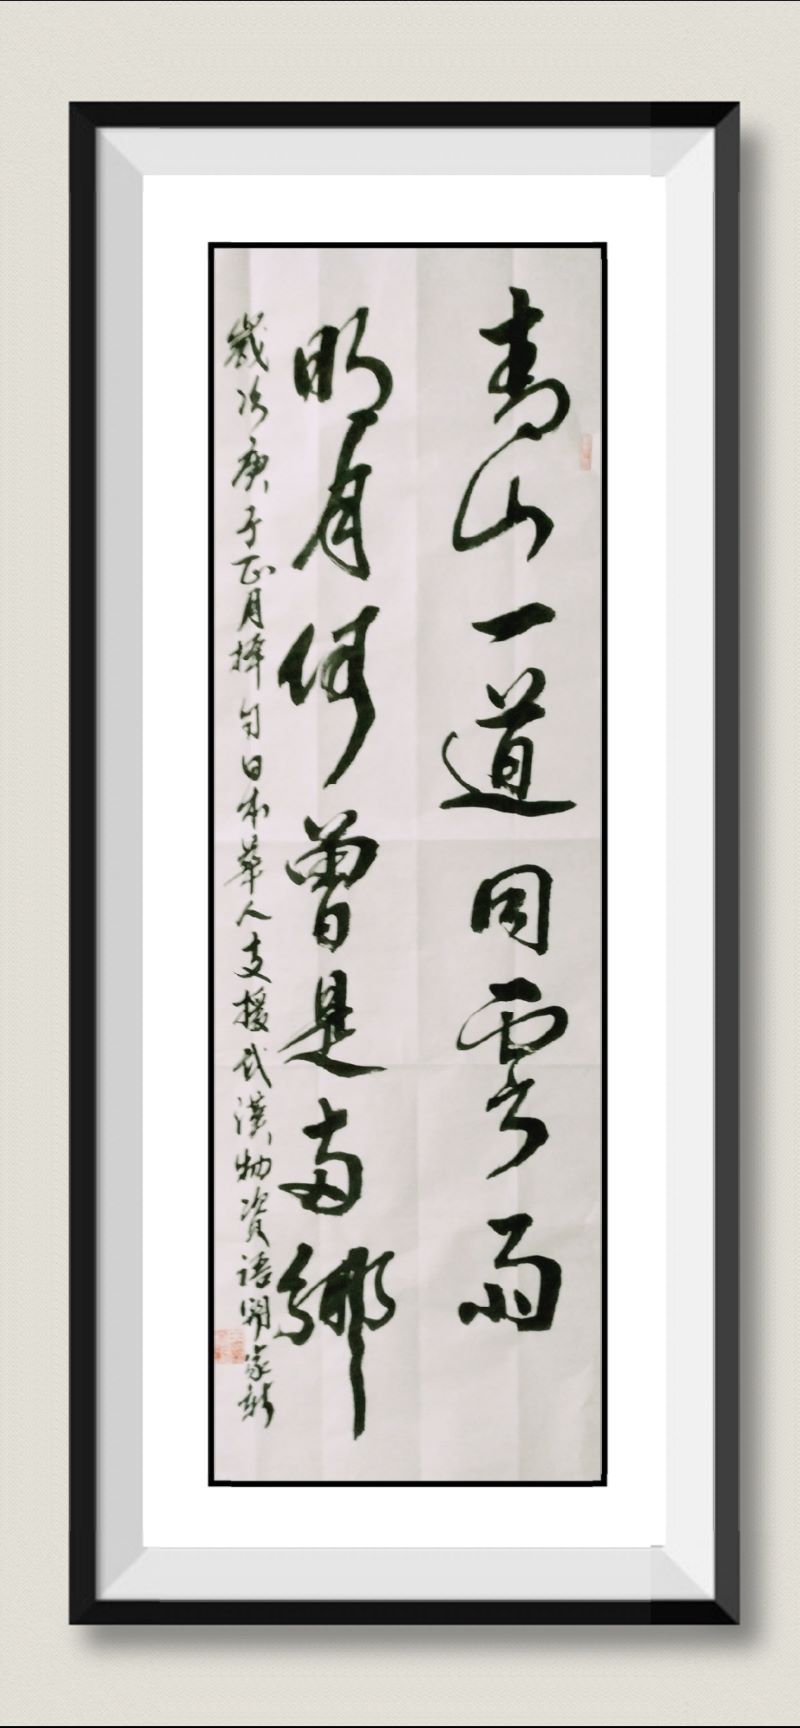 青山一道同雲雨
明月何曾是兩鄉
歲次庚子正月擇句日本華人支援武漢物資語